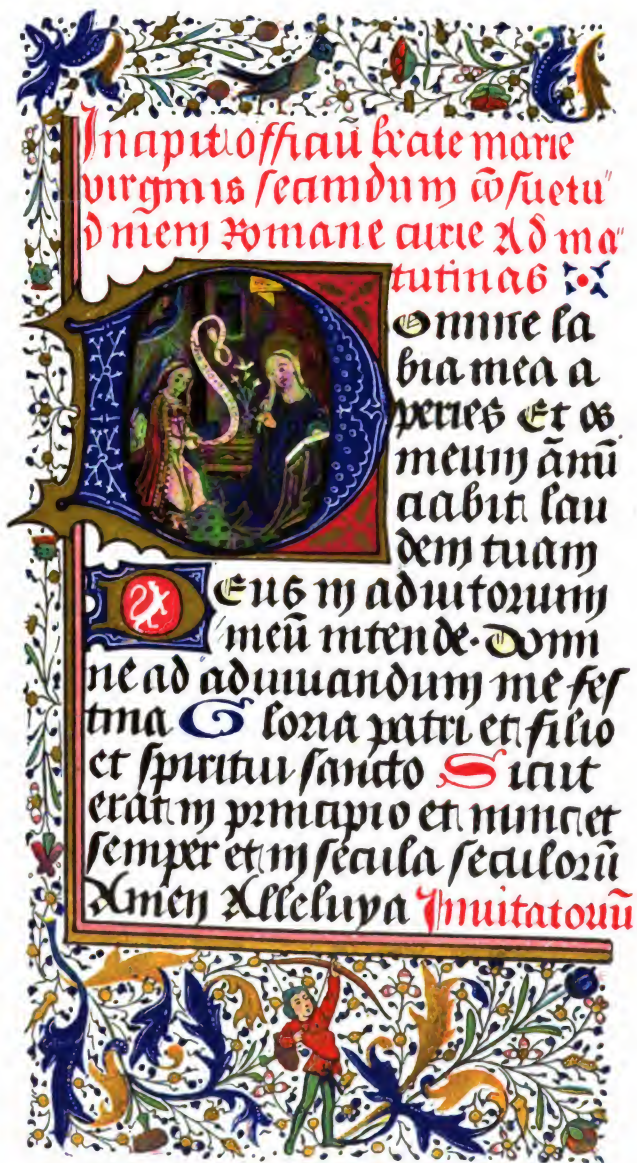 Incipit officiū beate marie
virginis secundum cōsuetu"
dinem Romane curie Ad ma"
tutinas
Domine la
bia mea a
peries Et os
meum ānū
ciabit lau
dem tuam
Deus in adiutorium
meū intende. Domi
ne ad adiuuandum me fes
tina Gloria patri et filio
et spiritui sancto Sicut
erat in principio et nunc et
semper et in secula seculorū
Amen Alleluya Inuitatoriū